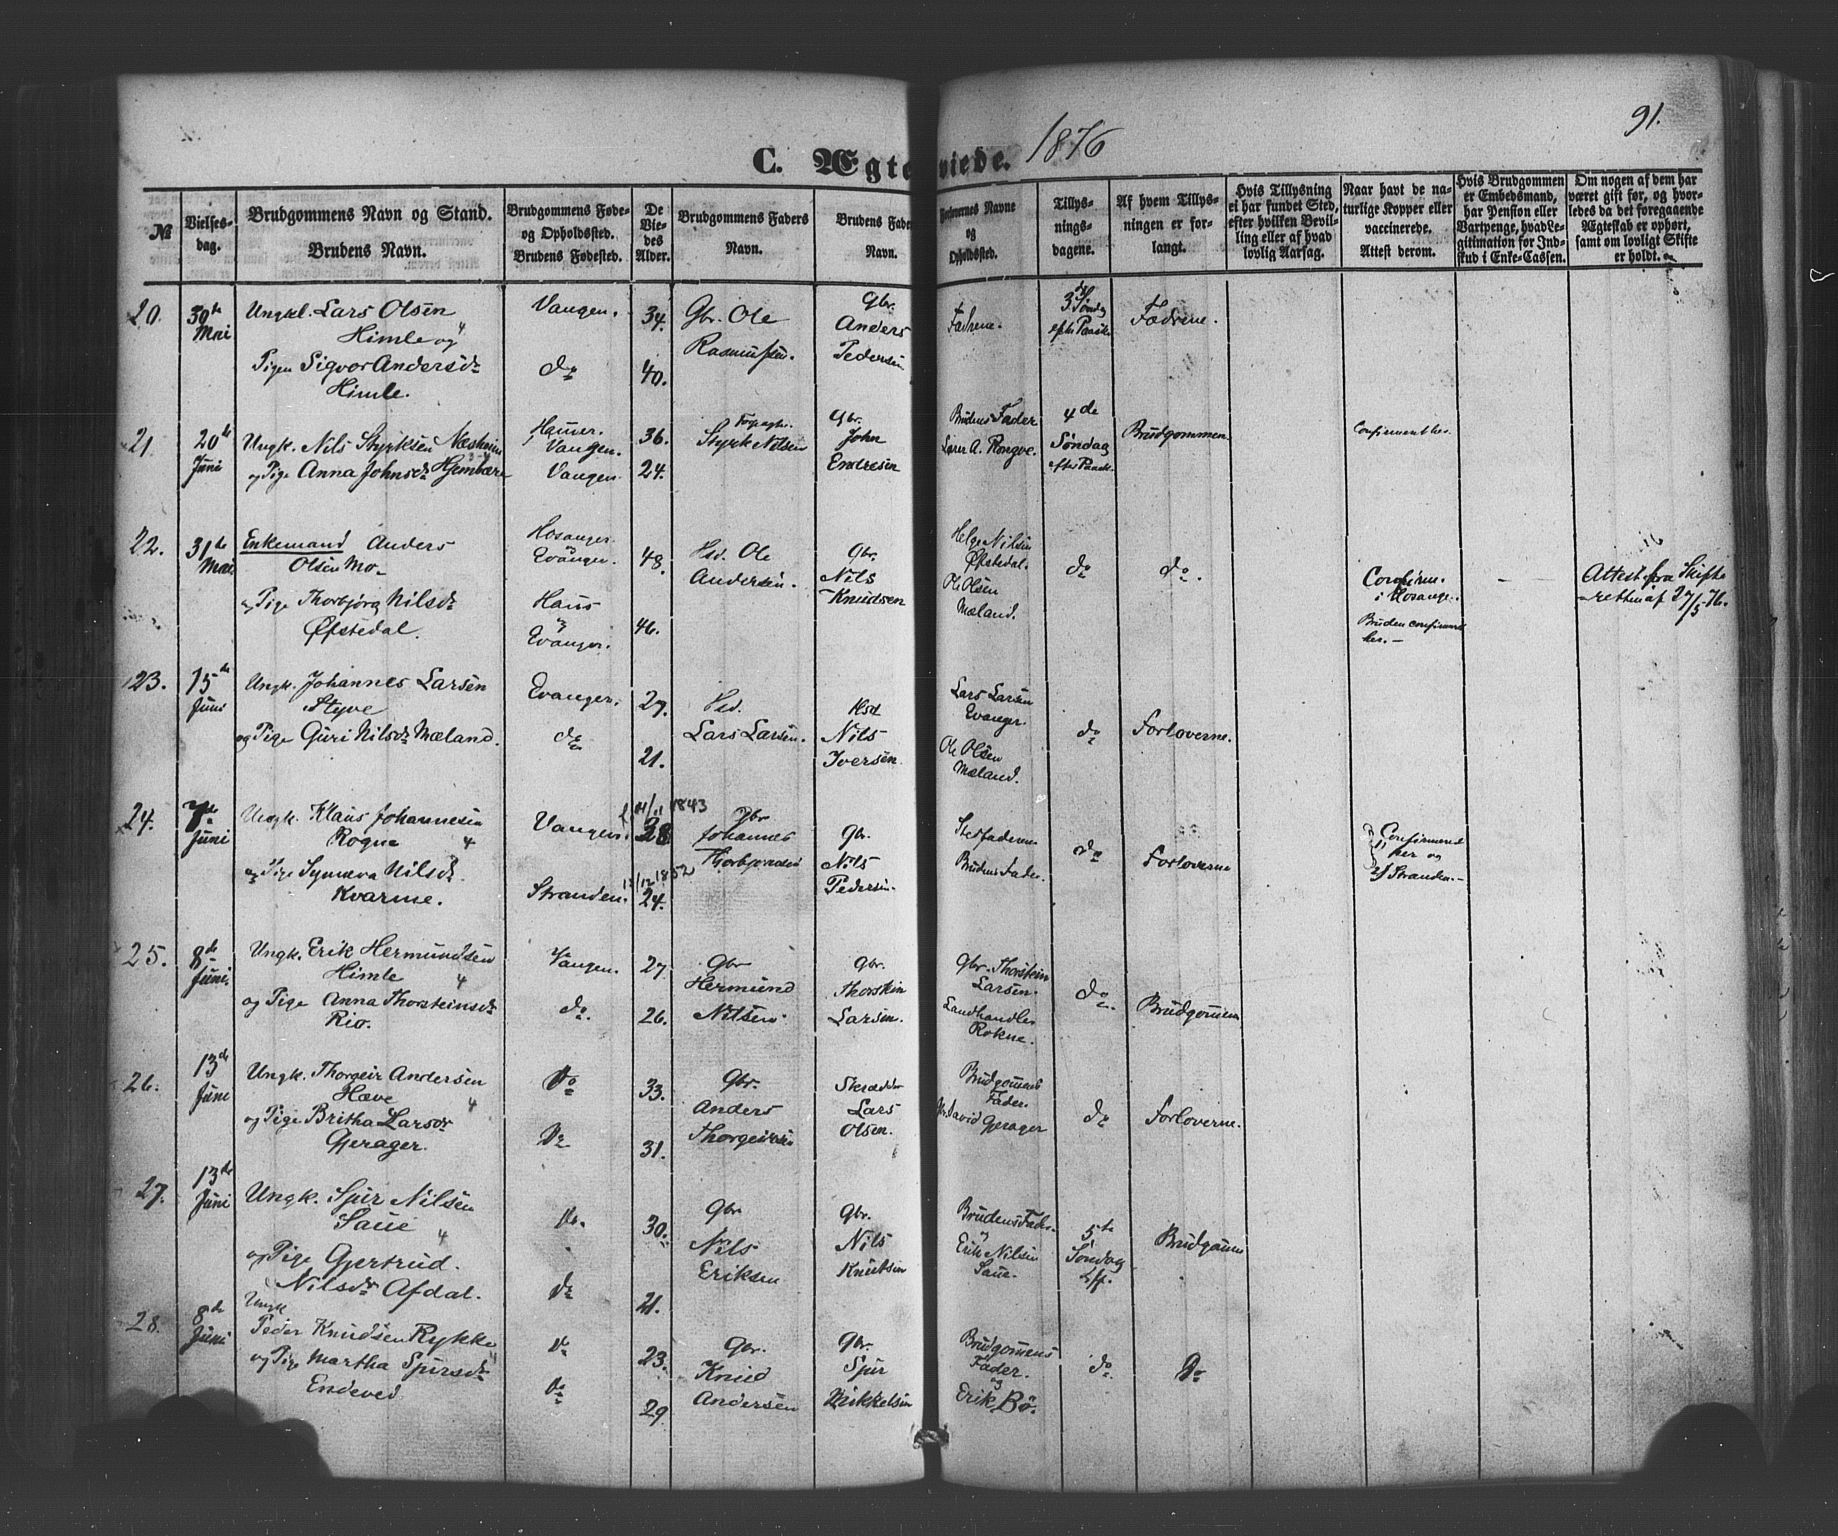 91.
C. Ægteviede. 1876
No
Vielses-
dag.
Brudgommens Navn og Stand.
Brudens Navn.
Brudgommens Føde-
og Opholdssted.
Brudens Fødested.
De
Vie-
des
Alder.
Brudgommens Faders
Navn.
Brudens Faders
Navn.
Forlovernes Navne
og
Opholdssted.
Tillys-
nings-
dagene.
Af hvem Tillys-
ningen er for-
langt.
Hvis Tillysning
ei har fundet Sted,
efter hvilken Bevil-
ling eller af hvad
lovlig Aarsag.
Naar havt de na-
turlige Kopper eller
vaccinerede.
Attest derom.
Hvis Brudgommen
er Embedsmand,
har Pension eller
Vartpenge, hvad Le-
gitimation for Ind-
skud i Enke-Cassen.
Om nogen af dem har
været gift før, og hvor-
ledes da det foregaaende
Ægteskab er ophørt,
samt om lovligt Skifte
er holdt.
20.
30te
Mai
Ungkl. Lars Olsen
Himle og
Pigen Sigvor Andersdr
Himle.
Vangen.
do
34.
40.
Gbr. Ole
Rasmussen.
Gbr.
Anders
Pedersen
Fædrene.
3 Søndag
efter Paaske
Fædrene.
21.
20de
Juni
Ungk. Nils Styrksen Næsheim
og Pige Anna Johnsdr Hjembære
Hammer.
Vangen.
Vangen.
36.
24.
Styrk Nilsen
Gbr.
John
Endresen
Brudens Fader
Lærer A. Rongve.
4de
Søndag
efter Paaske
Brudgommen
Confirmert her.
22.
31te
Mai
Enkemand Anders
Olsen Mo
og Pige Thorbjørg Nilsdr
Øfstedal.
Hosanger.
Evanger.
Haus
og
Evanger.
48.
46.
Hsd. Ole
Andersen.
Gbr.
Nils
Knudsen
Helge Nilsen
Øfstedal.
Ole Olsen
Mæland.
do
do.
Confirm.
i Hosanger.
Bruden confirmert
her.
Attest fra Skifte
retten af 27/5-76.
23.
15de
Juni
Ungk. Johannes Larsen
Styve
og Pige Guri Nilsdr Mæland.
Evanger.
do
27.
21.
Hsd.
Lars Larsen.
Hsd
Nils
Iversen.
Lars Larsen
Evanger.
Ole Olsen
Mæland.
do
Forloverne.
24.
7de
Juni
Ungk. Klaus Johannesen
Rogne
og Pige Synneva Nilsdr
Kvarme.
Vangen.
Stranden.
f. 1843
28
1852
24.
Gbr
Johannes
Thorbjørnsen
Gbr.
Nils
Pedersen.
Stedfaderen
Brudens Fader.
do
Forloverne
Confirmeret
her og
af Stranden.
25.
8de
Juni.
Ungk. Erik Hermundsen
Himle
og Pige Anna Thorsteinsdr
Rio.
Vangen.
do.
27.
26.
Gbr
Hermund
Nilsen.
Gbr.
Thorstein
Larsen.
Gbr. Thorstein
Larsen.
Landhandler
Rokne.
do
Brudgommen
26.
13de
Juni
Ungk. Thorgeir Andersen
Hæve
og Pige Britha Larsdr
Gjerager.
Do
Do
33.
31.
Gbr.
Anders
Thorgeirsen
Skrædder
Lars
Olsen.
Brudgommens
Fader.
David Gjerager
do
Forloverne.
27.
13de
Juni
Ungk. Spur Nilsen
Saue
og Pige Gjertrud
Nilsdr Afdal.
Do.
do
30.
21.
Gbr.
Nils
Eriksen
Gbr.
Nils
Knutsen
Brudens Fader.
Erik Nilsen
Saue.
5te
Søndag
Brudgomm
28.
8de
Juni
Ungk
Peder Knudsen Rykke
og Pige Martha Spursdr
Endeved
do
do
23.
29.
Gbr.
Knud
Andersen
Gbr.
Spur
Mikkelsen
Brudgommens
Fader.
og
Erik Bø.
do.
Do